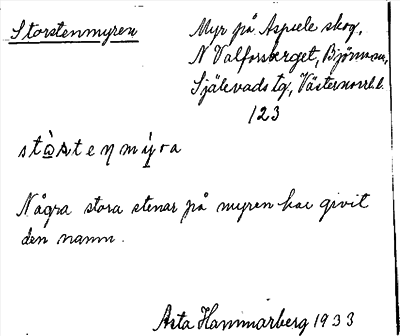 Storstenmyren
Myr på Aspeele skog,
N Valforsberget, Björnna sn,
Själevads tg, Västernorrl. l.
123
Några stora stenar på myren har givit
den namn.
Asta Hammarberg 1933